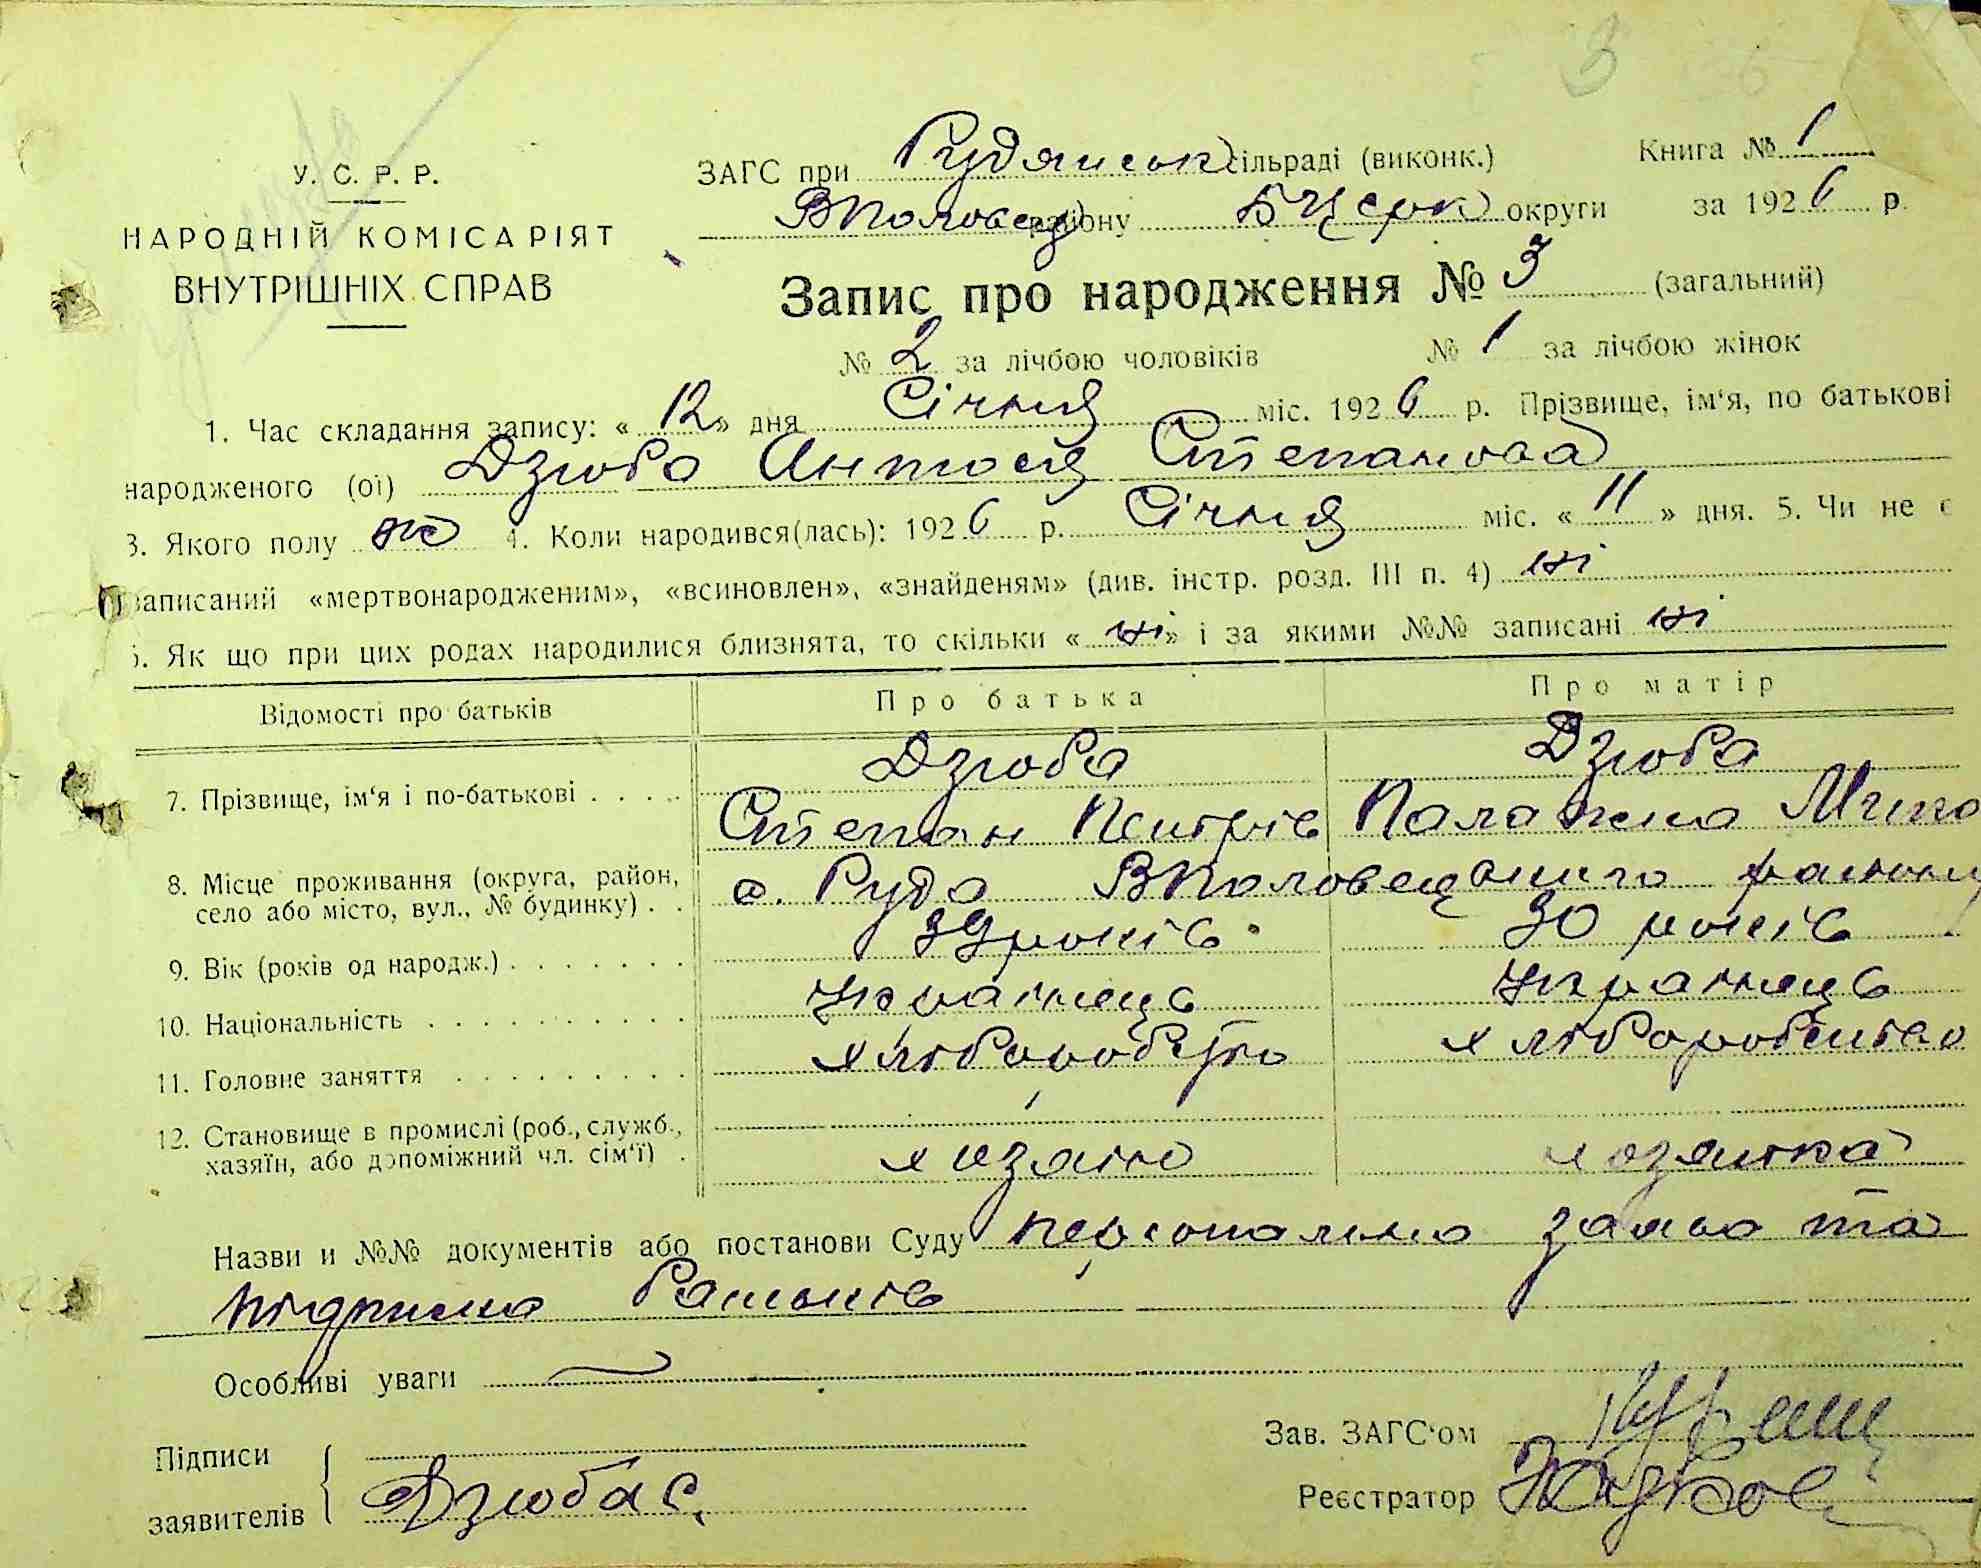 У. С. Р. Р.
НАРОДНІЙ КОМІСАРІЯТ
ВНУТРІШНІХ СПРАВ
ЗАГС при Рудянськ сільраді (виконк.) Книга № 1
ВПоловец району БЦерк округи за 1926 р.
Запис про народження № 3 (загальний)
№ 2 за лічбою чоловіків № 1 за лічбою жінок
1. Час складання запису: « 12 » дня Січня міс. 1926 р. Прізвище, ім'я, по батькові
народженого (ої) Дзюба Антося Степанова
3. Якого полу ж 4. Коли народився(лась): 1926 р. Січня міс. « 11 » дня. 5. Чи не є
записаний «мертвонародженим», «всиновлен», «знайденям» (див. інстр. розд. III п. 4) ні
6. Як що при цих родах народилися близнята, то скільки « ні » і за якими №№ записані ні
Відомості про батьків Про батька Про матір
7. Прізвище, ім'я і по-батькові . . . . Дзюба Дзюба
Степан Петрів Палажка Мико
8. Місце проживання (округа, район, село або місто, вул., № будинку) . . с. Руда ВПоловецького району
9. Вік (років од народж.) . . . . . . . 39 років 30 років
10. Національність . . . . . . . . . . українець українець
11. Головне заняття . . . . . . . . . хліборобство хліборобство
12. Становище в промислі (роб., служб., хазяїн, або допоміжний чл. сім'ї) . хозяїн хозяйка
Назви и №№ документів або постанови Суду персональна заява та
підписка батьків
Особливі уваги
Підписи
заявителів Дзюба С.
Зав. ЗАГС'ом
Реєстратор